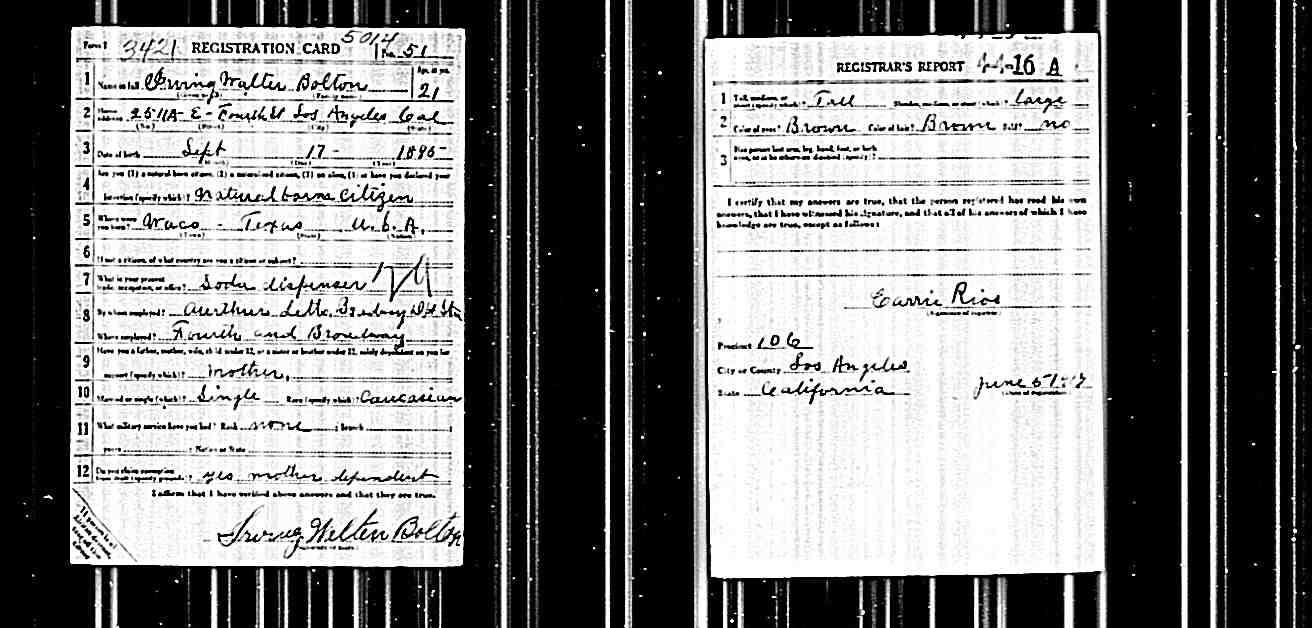 Form 1 3421 REGISTRATION CARD 5014 No. 51
1 Name in full Irving Walter Bolton Age, in yrs. 21
(Given name) (Family name)
2 Home address 2511A - E - Fourth St Los Angeles Cal
(No.) (Street) (City) (State)
3 Date of birth Sept 17 - 1895
(Month) (Day) (Year)
4 Are you (1) a natural born citizen, (2) a naturalized citizen, (3) an alien, (4) or have you declared your
intention (specify which)? Natural born citizen
5 Where were you born? Waco - Texas U.S.A.
(Town) (State) (Nation)
6 If not a citizen, of what country are you a citizen or subject?
7 What is your present trade, occupation, or office? Soda dispenser
8 By whom employed? Aurthur Lett. Broadway Dpt Str
Where employed? Fourth and Broadway
9 Have you a father, mother, wife, child under 12, or a sister or brother under 12, solely dependent on you for
support (specify which)? Mother,
10 Married or single (which)? Single Race (specify which)? Caucasian
11 What military service have you had? Rank none ; branch ;
years ; Nation or State
12 Do you claim exemption from draft (specify grounds)? yes mother dependent
I affirm that I have verified above answers and that they are true.
Irving Walter Bolton
REGISTRAR'S REPORT 4-4-16 A
1 Tall, medium, or short (specify which)? Tall Slender, medium, or stout (which)? large
2 Color of eyes? Brown Color of hair? Brown Bald? no
3 Has person lost arm, leg, hand, foot, or both
eyes, or is he otherwise disabled (specify)?
I certify that my answers are true, that the person registered has read his own
answers, that I have witnessed his signature, and that all of his answers of which I have
knowledge are true, except as follows:
Carrie Rios
(Signature of registrar)
Precinct 106
City or County Los Angeles
State California June 5 1917
(Date of registration)